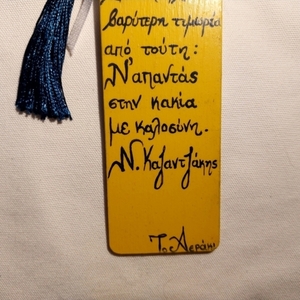 βαρύτερη τιμωρία
από τούτη:
Ν'απαντάς
στην κακία
με καλοσύνη.
Ν. Καζαντζάκης
Το Αεράκι